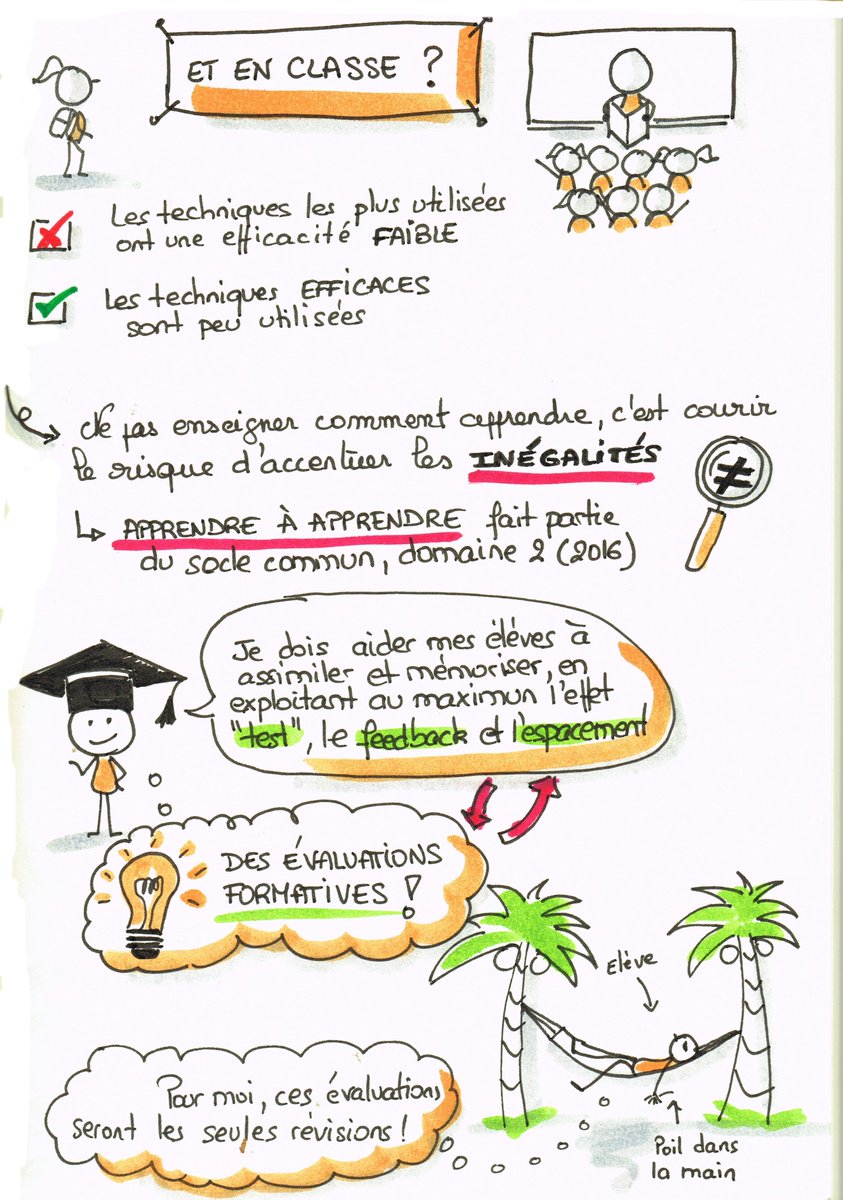 ET EN CLASSE ?
Les techniques les plus utilisées
ont une efficacité FAIBLE
Les techniques EFFICACES
sont peu utilisées
Ne pas enseigner comment apprendre, c'est courir
le risque d'accentuer les INÉGALITÉS
≠
APPRENDRE À APPRENDRE fait partie
du socle commun, domaine 2 (2016)
Je dois aider mes élèves à
assimiler et mémoriser, en
exploitant au maximun l'effet
"test", le feedback et l'espacement
DES ÉVALUATIONS
FORMATIVES !
Elève
Pour moi, ces évaluations
seront les seules révisions !
Poil dans
la main